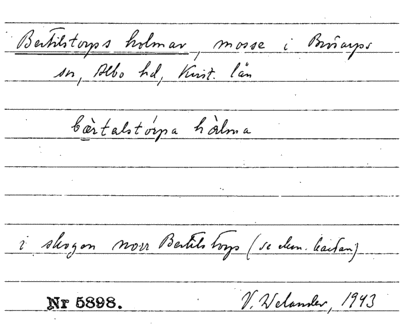 Bertilstorps holmar, mosse i Brösarps
sn, Albo hd, Krist. län
bærtalstórpa hòlma
i skogen norr Bertilstorp (se ekon. kartan)
Nr 5898. V. Welander, 1943